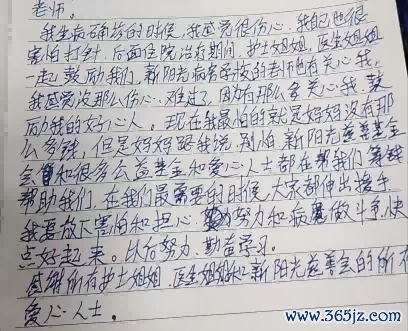 老师。
我生病确诊的时候,我感觉很伤心,我自己也很
害怕打针,后面住院治疗期间,护士姐姐,医生姐姐
一起鼓励我们,新阳光病房学校的老师也有关心我,
我感觉没那么伤心、难过了,因为有那么多关心我、鼓
励我的好心人。现在我最怕的就是妈妈没有那
么多钱,但是妈妈跟我说,别怕,新阳光慈善基金
会和很多公益基金和爱心人士都在帮我们筹钱
帮助我们,在我们最需要的时候,大家都伸出援手
我要放下害怕和担心,努力和病魔做斗争,快
点好起来。以后努力、勤奋学习。
感谢所有护士姐姐、医生姐姐和新阳光慈善会的所有
爱心人士。
www.365jz.com